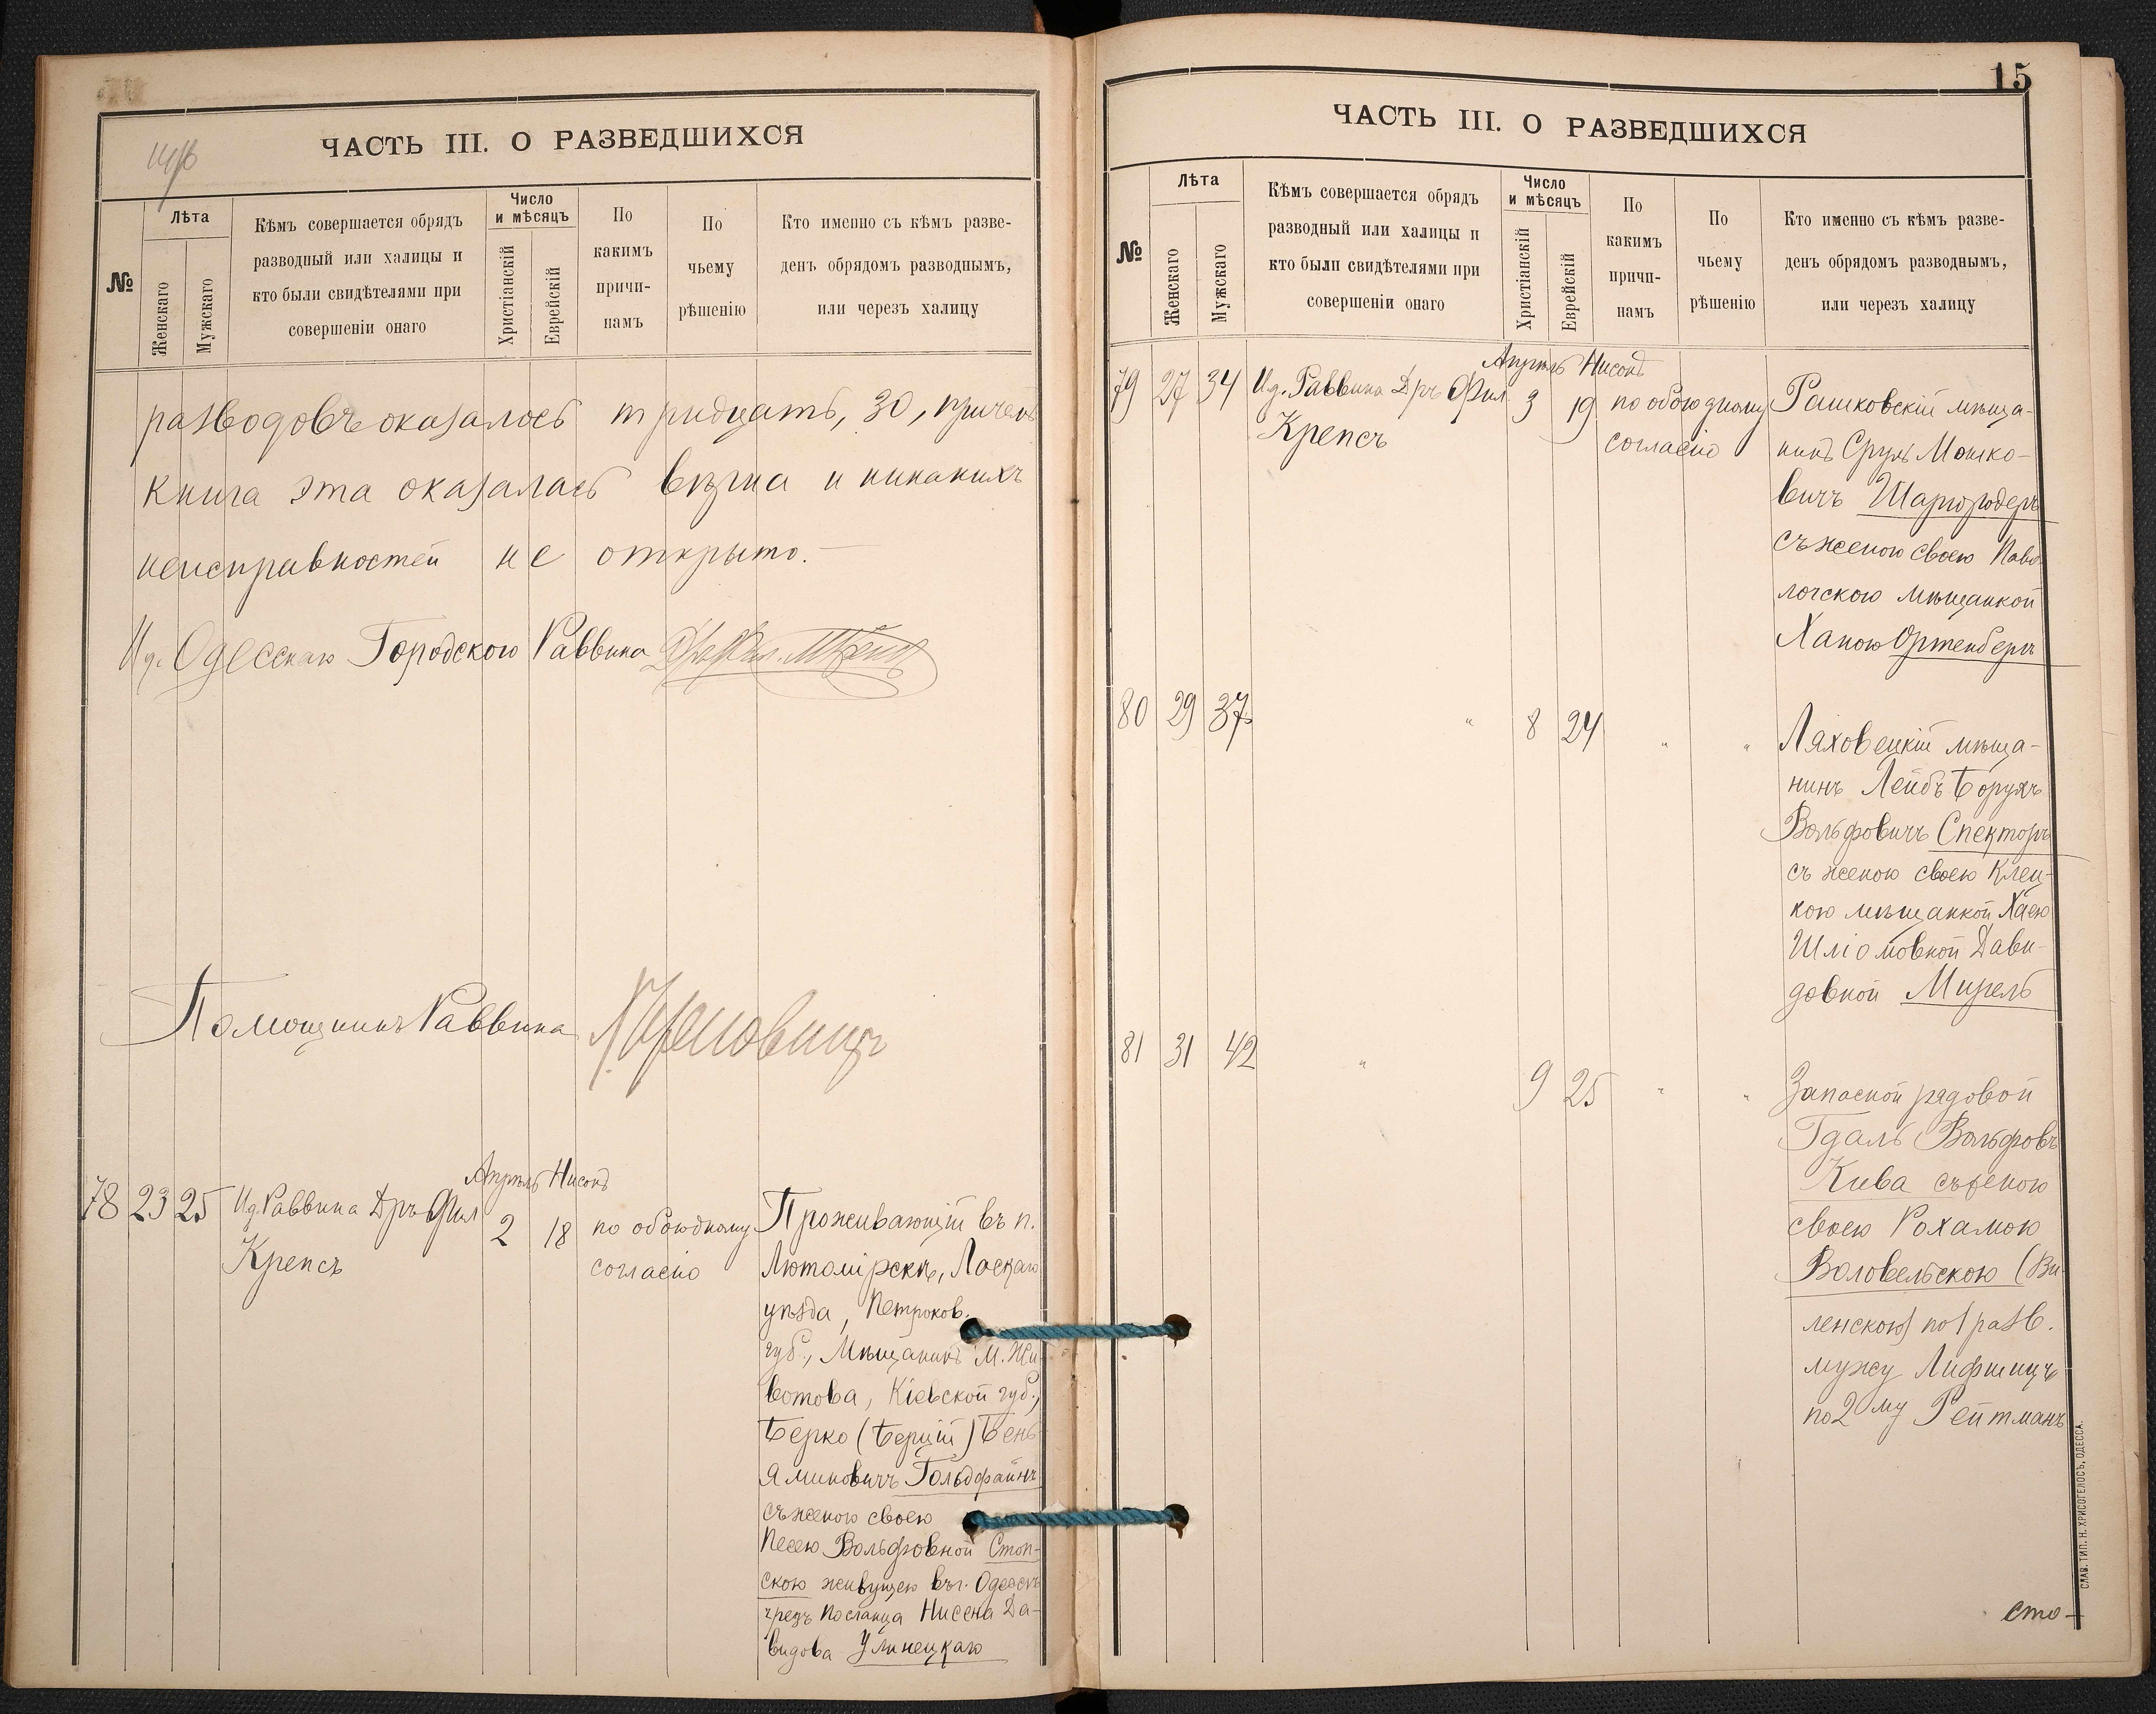 ЧАСТЬ III. О РАЗВЕДШИХСЯ
№
Лѣта
Женскаго
Мужскаго
Кѣмъ совершается обрядъ
разводный или халицы и
кто были свидѣтелями при
совершеніи онаго
Число
и мѣсяцъ
Христіанскій
Еврейскій
По
какимъ
причи-
намъ
По
чьему
рѣшенію
Кто именно съ кѣмъ разве-
денъ обрядомъ разводнымъ,
или черезъ халицу
разводовъ оказалось тридцать, 30, причемъ
книга эта оказалась вѣрна и никакихъ
неисправностей не открыто.—
И. д. Одесскаго Городского Раввина
Помощникъ Раввина
Апрѣль Нисонъ
78 23 25 И.д. Раввина Дръ Фил 2 18 по обоюдному
Крепсъ согласію
Проживающій въ п.
Лютомірскѣ, Ласкаго
уѣзда, Петроков.
губ., Мѣщанинъ м. Жи-
вотова, Кіевской губ.,
Берко (Берцій) Бень-
яминовичъ Гольдфайнъ
съ женою своею
Песею Вольфовной Стоп-
скою живущею въ г. Одессѣ
чрезъ посланца Нисена Да-
видова Улинецкаго
15
ЧАСТЬ III. О РАЗВЕДШИХСЯ
№
Лѣта
Женскаго
Мужскаго
Кѣмъ совершается обрядъ
разводный или халицы и
кто были свидѣтелями при
совершеніи онаго
Число
и мѣсяцъ
Христіанскій
Еврейскій
По
какимъ
причи-
намъ
По
чьему
рѣшенію
Кто именно съ кѣмъ разве-
денъ обрядомъ разводнымъ,
или черезъ халицу
Апрѣль Нисонъ
79 27 34 И.д. Раввина Дръ Фил. 3 19 по обоюдному
Крепсъ согласію
Рашковскій мѣща-
нинъ Сруль Мошко-
вичъ Шаргородеръ
съ женою своею Паво-
лочскою мѣщанкой
Ханою Ортенбергъ
80 29 37 " 8 24 " "
Ляховецкій мѣща-
нинъ Лейбъ Борухъ
Вольфовичъ Спекторъ
съ женою своею Клец-
кою мѣщанкой Хаею
Шліомовной Дави-
довной Мирель
81 31 42 " 9 25 " "
Запасной рядовой
Гдаль Вольфовъ
Кива съ женою
своею Рохамою
Воловельскою (Ви-
ленскою) по 1 разв.
мужу Лифшицъ
по 2му Рейтманъ
сто-
СЛАВ. ТИП. Н. ХРИСОГЕЛОСЪ, ОДЕССА.